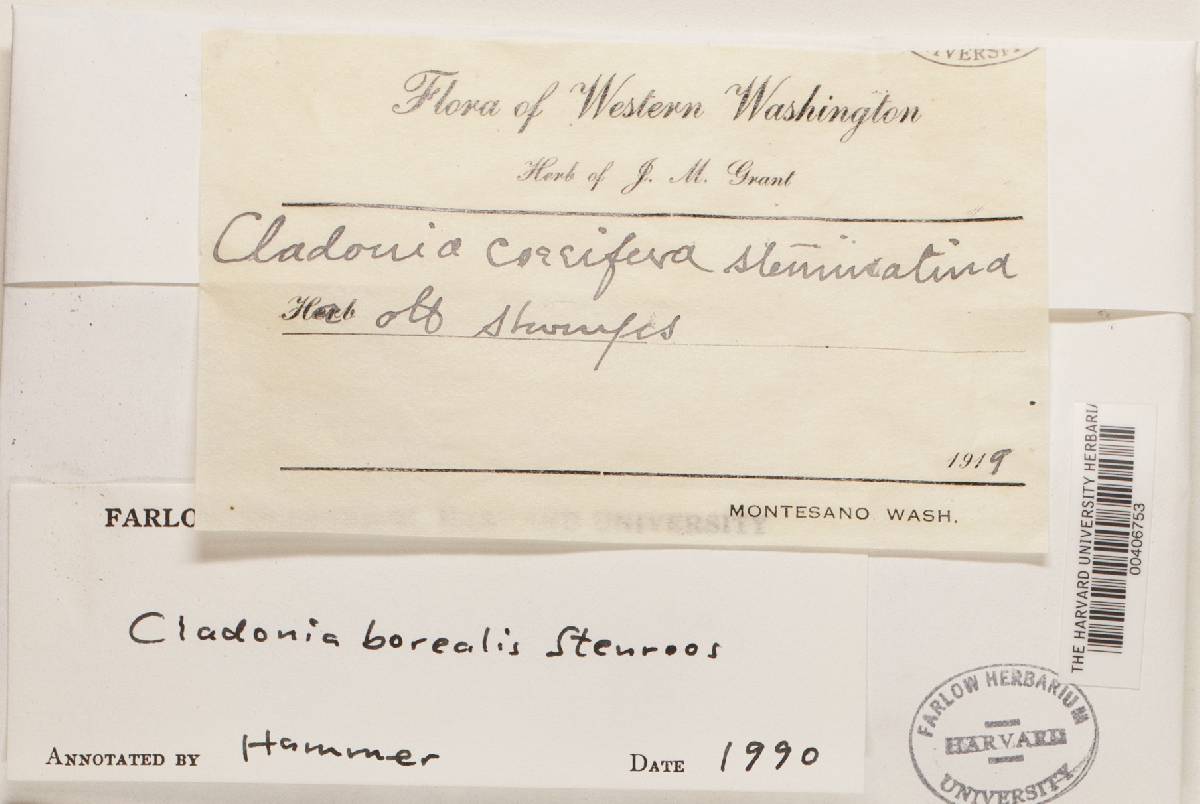 IVERSITY
Flora of Western Washington
Herb of J. M. Grant
Cladonia coccifera stemmatina
Herb old stumps
1919
MONTESANO WASH.
FARLO HARVARD UNIVERSITY
Cladonia borealis Stenroos
ANNOTATED BY Hammer DATE 1990
THE HARVARD UNIVERSITY HERBARIA
00406753
FARLOW HERBARIUM
HARVARD
UNIVERSITY